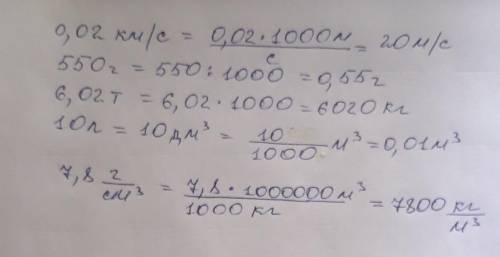 0,02 км/с = 0,02·1000м/с = 20м/с
550г = 550:1000 = 0,55г
6,02т = 6,02·1000 = 6020 кг
10л = 10дм³ = 10/1000 м³ = 0,01м³
7,8 г/см³ = 7,8·1000000м³/1000 кг = 7800 кг/м³